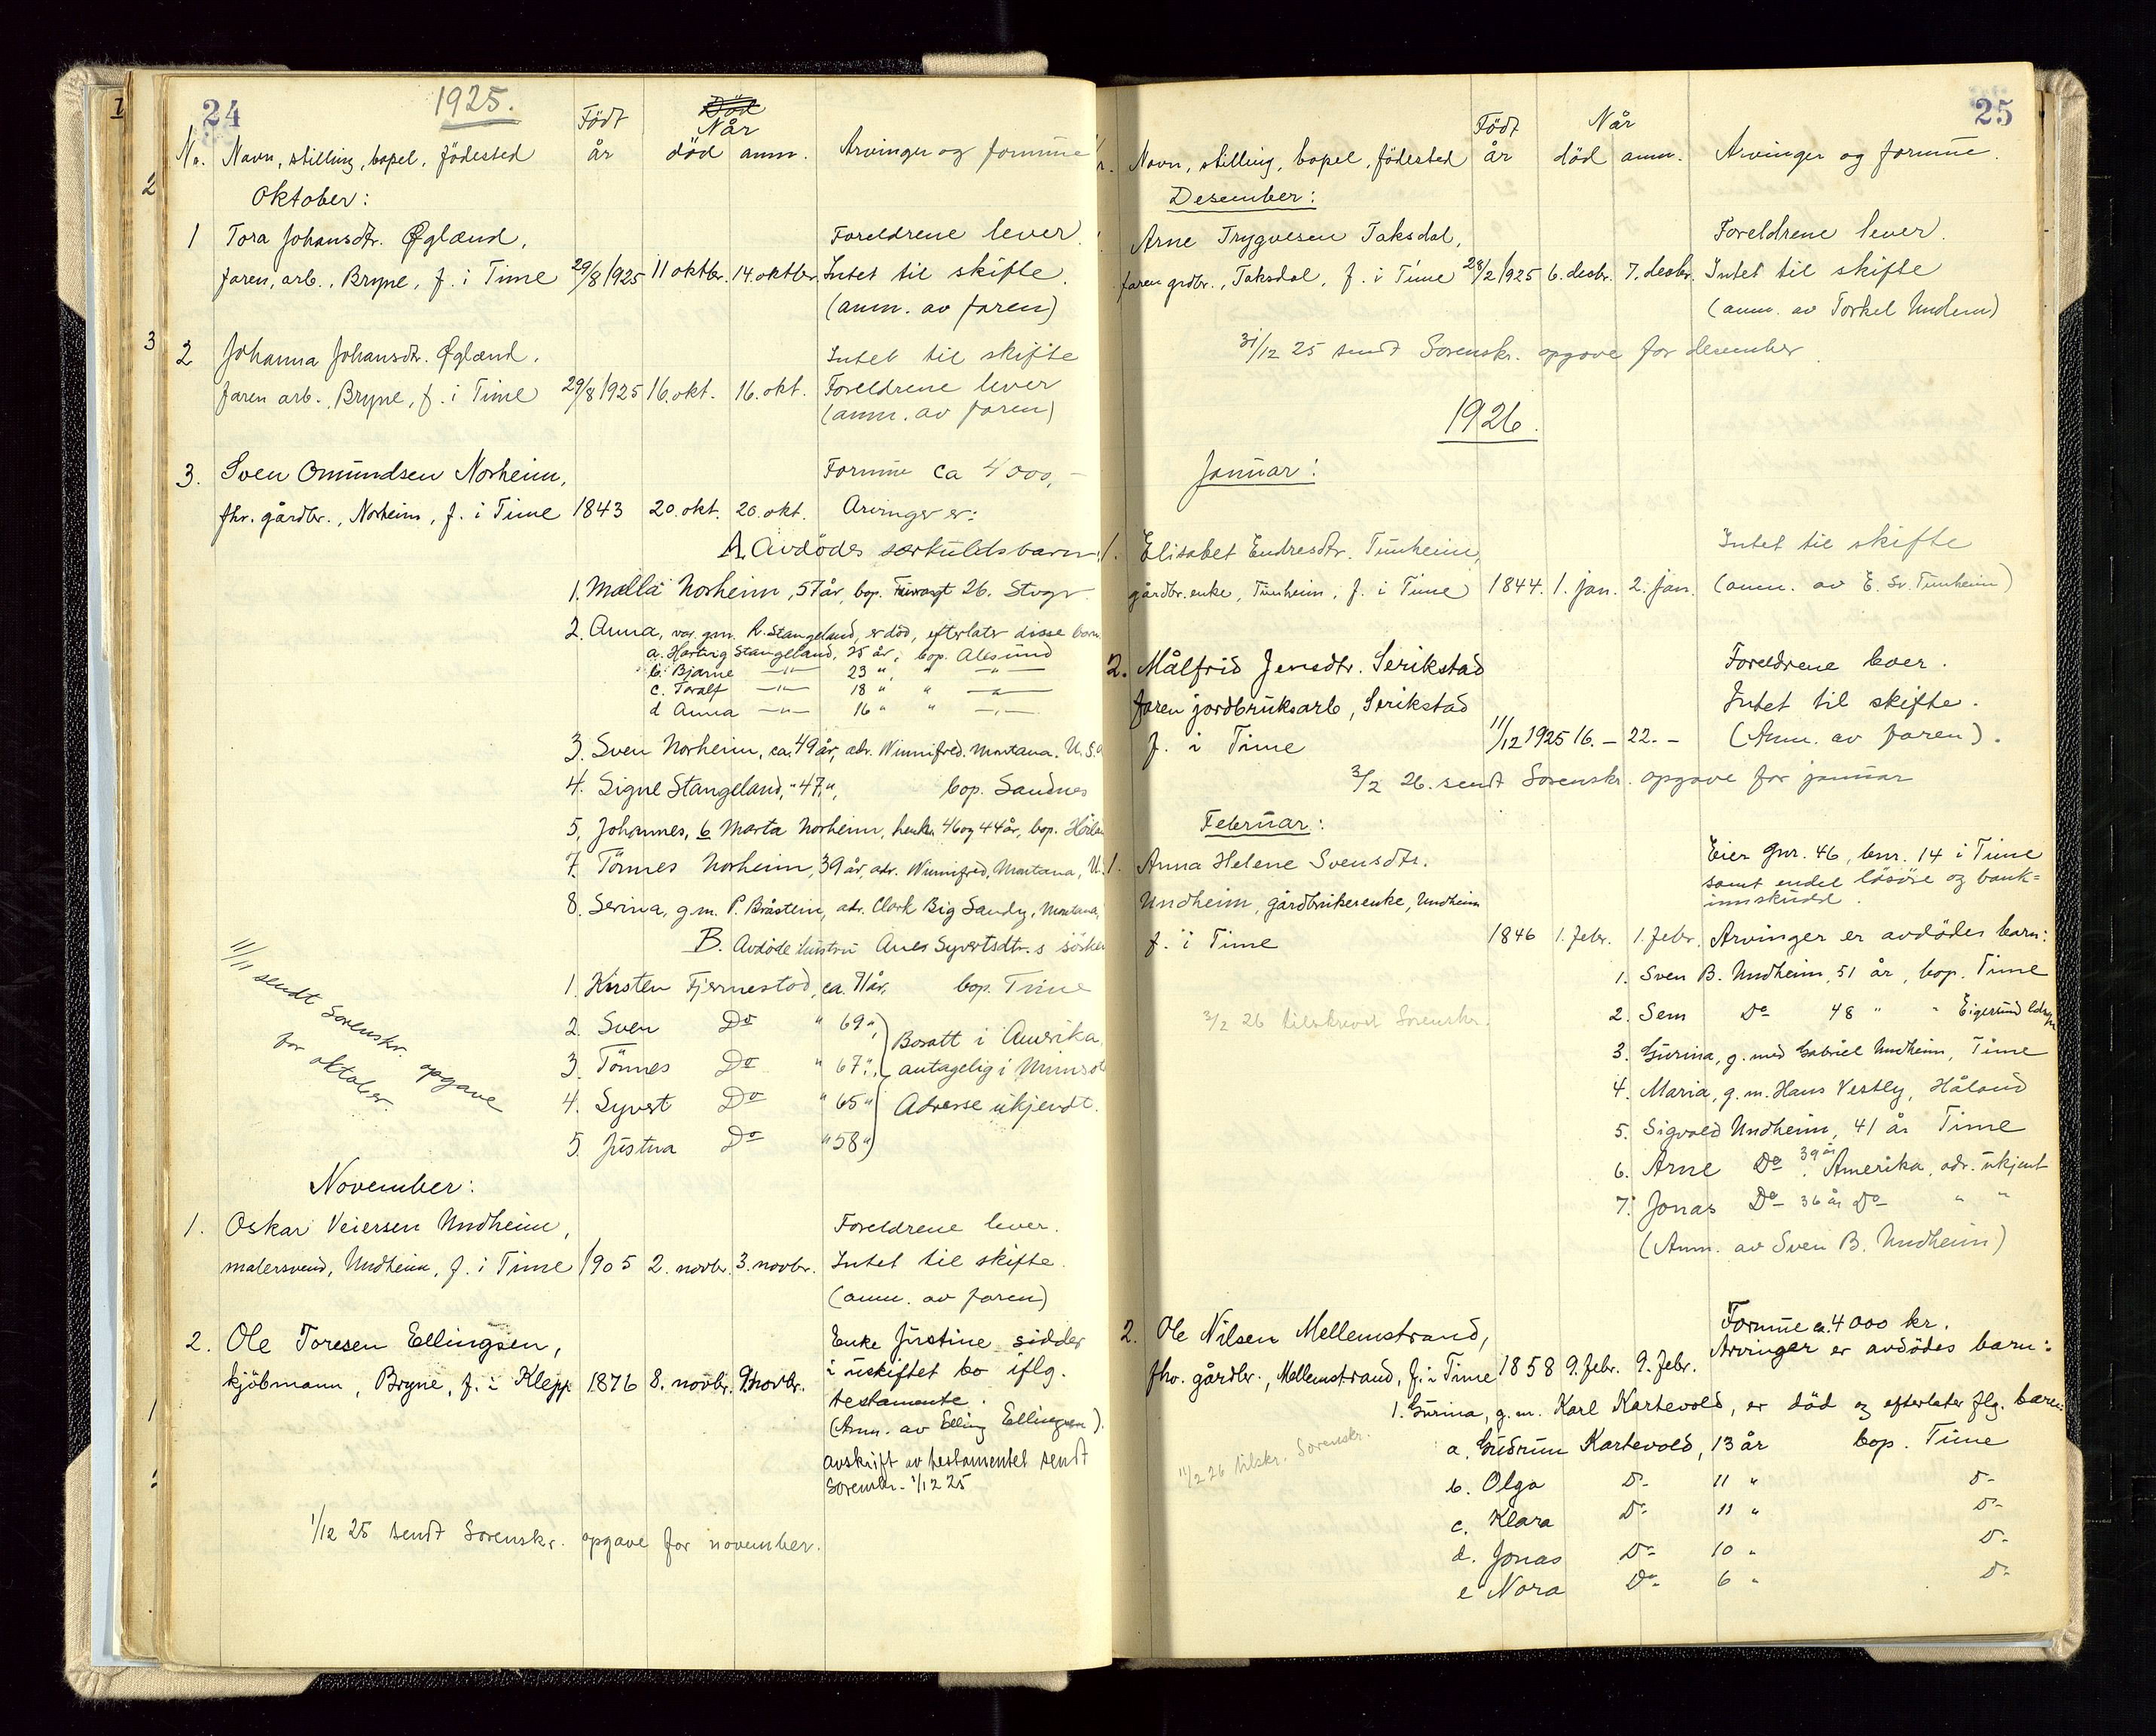 24
1925.
No. Navn, stilling, bopel, födested
Födt
år
Död
Når
död anm.
Arvinger og formue
Oktober:
1 Tora Johansdtr. Øglænd,
Foreldrene lever
faren, arb., Bryne, f. i Time 29/8 1925 11 oktbr. 14. oktbr. Intet til skifte.
(anm. av faren)
2 Johanna Johansdtr. Øglænd.
Intet til skifte
faren arb., Bryne, f. i Time 29/8 1925 16. okt. 16. okt. Foreldrene lever
(anm. av faren)
3. Sven Omundsen Norheim,
Formue ca 4000,-
fhv. gårdbr., Norheim, f. i Time 1843 20. okt. 20. okt. Arvinger er:
A. Avdödes særkuldsbarn
1. Malla Norheim, 57 år, bop. 26. Stvgr.
2. Anna, var gm. R. Stangeland, er död, efterlater disse barn
a. Hartvig Stangeland, 25 år, bop. Alesund
b. Bjarne —"— 23 " " —"—
c. Toralf —"— 18 " " —"—
d Anna —"— 16 " " —"—
3. Sven Norheim, ca. 49 år, adr. Winnifred. Montana. U.S.a
4. Signe Stangeland, " 47 ", bop. Sandnes
5, Johannes, 6 Marta Norheim, henhv. 46 og 44 år, bop.
7. Tönnes Norheim, 39 år, adr. Winnifred, Montana, U.
8. Serina, g.m. P. Bråstein, adr. Clark Big Sandy, Montana,
B. Avdöde hustru Anes Syvertsdtr.s
1. Kirsten Fjermestad, ca. 71 år, bop. Time
2. Sven Do " 69 "
3. Tönnes Do " 67 "
4. Syvert Do " 65 "
5. Justna Do " 58 "
Bosatt i Amerika,
antagelig i
Adresse ukjendt.
11/11 sendt Sorenskr. opgave
for oktober.
November:
1. Oskar Veiersen Undheim,
Foreldrene lever.
malersvend, Undheim, f. i Time 1905 2. novbr. 3. novbr. Intet til skifte.
(anm. av faren)
2. Ole Toresen Ellingsen,
Enke Justine sidder
kjöbmann, Bryne, f. i Klepp 1876 8. novbr. 9 novbr. i uskiftet bo iflg.
testamente.
(Anm. av Elling Ellingsen).
avskrift av testamentet sendt
Sorenskr. 1/12 25
1/12 25 sendt Sorenskr. opgave for november.
25
Navn, stilling, bopel, födested
Födt
år
Når
död anm.
Arvinger og formue.
Desember:
Arne Trygvesen Taksdal,
Foreldrene lever.
faren grdbr., Taksdal, f. i Time 28/2 1925 6. desbr. 7. desbr. Intet til skifte
(anm. av Torkel Undem)
31/12 25 sendt Sorenskr. opgave for desember
1926.
Januar:
1. Elisabet Endresdtr. Tunheim,
Intet til skifte
gårdbr. enke, Tunheim, f. i Time 1844. 1. jan. 2. jan. (anm. av E. Sv. Tunheim)
2. Målfrid Jensdtr. Serikstad
Foreldrene lever.
faren jordbruksarb, Serikstad
Intet til skifte.
f. i Time 11/12 1925 16. - 22. - (Anm. av faren).
3/2 26. sendt Sorenskr. opgave for januar
Februar:
1. Anna Helene Svensdtr.
Eier gnr. 46, bnr. 14 i Time
samt endel lösöre og bank=
innskudd.
Undheim, gårdbrukerenke, Undheim
f. i Time 1846 1. febr. 1. febr. Arvinger er avdödes barn:
1. Sven B. Undheim, 51 år, bop. Time
2. Sem Do 48 " " Eigersund
3. Gurina, g. med Gabriel Undheim, Time
4. Maria, g. m. Hans Vestly, Håland
5. Sigvald Undheim, 41 år Time
6. Arne Do 39 år, Amerika, adr. ukjent
7. Jonas Do 36 år Do " "
(Anm. av Sven B. Undheim)
3/2 26 tilskrevet Sorenskr.
2. Ole Nilsen Mellemstrand,
Formue ca. 4000 kr.
fhv. gårdbr., Mellemstrand, f. i Time 1858 9. febr. 9. febr. Arvinger er avdödes barn:
1. Gurina, g. m. Karl Kartevold, er död og efterlater flg. barn:
a. Gudrun Kartevold, 13 år bop. Time
b. Olga Do 11 " Do
c. Klara Do 11 " Do
d. Jonas Do 10 " Do
e Nora Do 6 " Do
11/2 26 tilskr. Sorenskr.